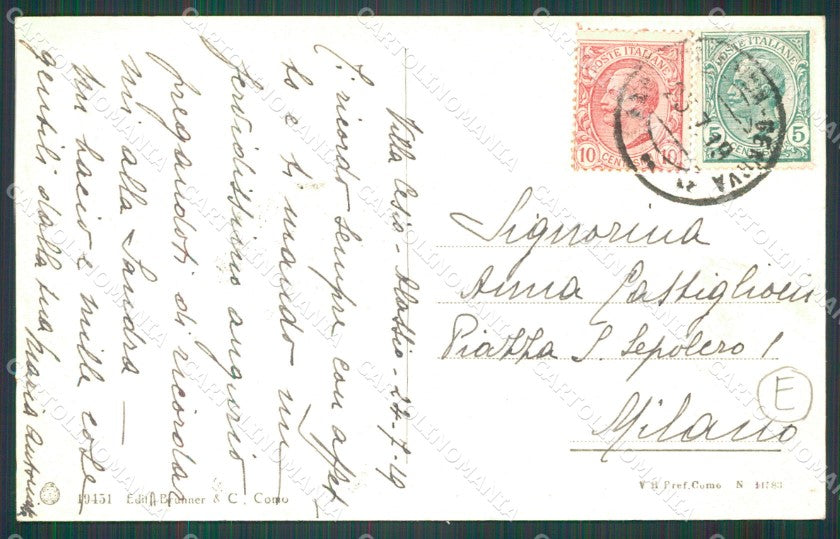 Villa Cesia - Alassio - 24-7-19
Ti ricordo sempre con affet
to e ti mando un
fervidissimo augurio
pregandoti di ricordar
mi alla Sandra —
Un bacio e mille cose
gentili dalla tua Maria
POSTE ITALIANE
10 CENT 10
POSTE ITALIANE
5 CEN 5
Signorina
Anna Castiglioni
Piazza S. Sepolcro 1
Milano
E
19451 Edit. Brunner & C. Como
V ti Pref. Como N
CARTOLINOMANIA